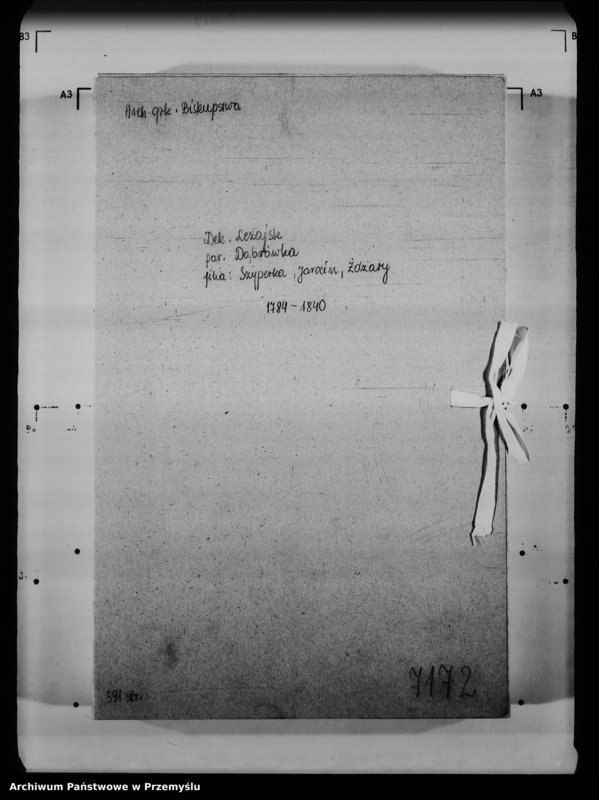 B3
A3
A3
Arch. gr.k. Biskupstwa
Dek. Leżajsk
par. Dąbrówka
filia: Szyperka, Jarocin, Żdżary
1784 - 1840
391 str.
7172
Archiwum Państwowe w Przemyślu